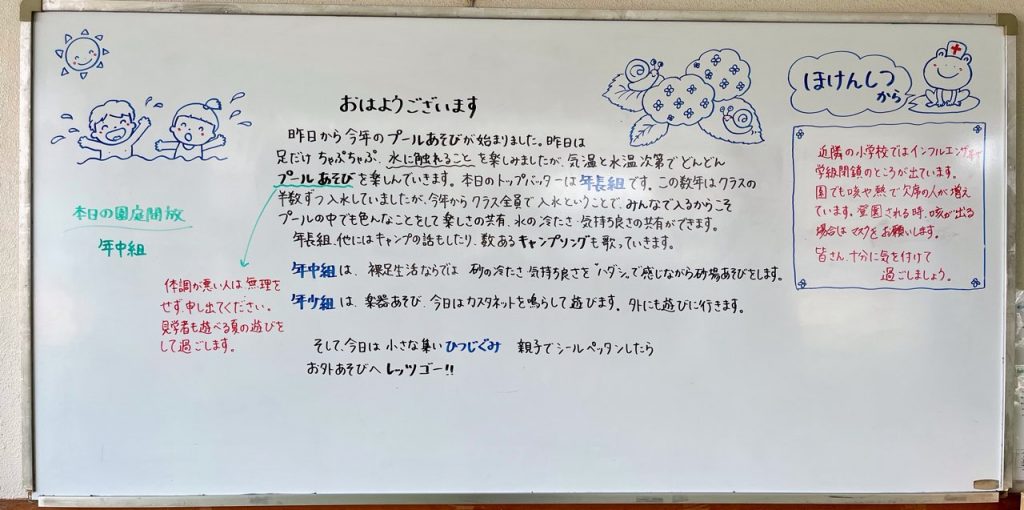 おはようございます
昨日から今年のプールあそびが始まりました。昨日は
足だけ ちゃぷちゃぷ、水に触れることを楽しみましたが、気温と水温次第でどんどん
プールあそびを楽しんでいきます。本日のトップバッターは年長組です。この数年はクラスの
半数ずつ入水していましたが、今年からクラス全員で入水ということで、みんなで入るからこそ
プールの中でも色んなことをして楽しさの共有、水の冷たさ・気持ち良さの共有ができます。
年長組、他にはキャンプの話もしたり、数あるキャンプソングも歌っていきます。
年中組は、裸足生活ならでは 砂の冷たさ・気持ち良さを"ハダシ"で感じながら砂場あそびをします。
年少組は、楽器あそび、今日はカスタネットを鳴らして遊びます。外にも遊びに行きます。
そして、今日は 小さな集い ひつじぐみ 親子でシールペッタンしたら
お外あそびへ レッツゴー!!
本日の園庭開放
年中組
体調が悪い人は無理を
せず、申し出てください。
見学者も遊べる夏の遊びを
して過ごします。
ほけんしつ
から
近隣の小学校ではインフルエンザで
学級閉鎖のところが出ています。
園でも咳や熱で欠席の人が増え
ています。登園される時、咳が出る
場合はマスクをお願いします。
皆さん、十分に気を付けて
過ごしましょう。